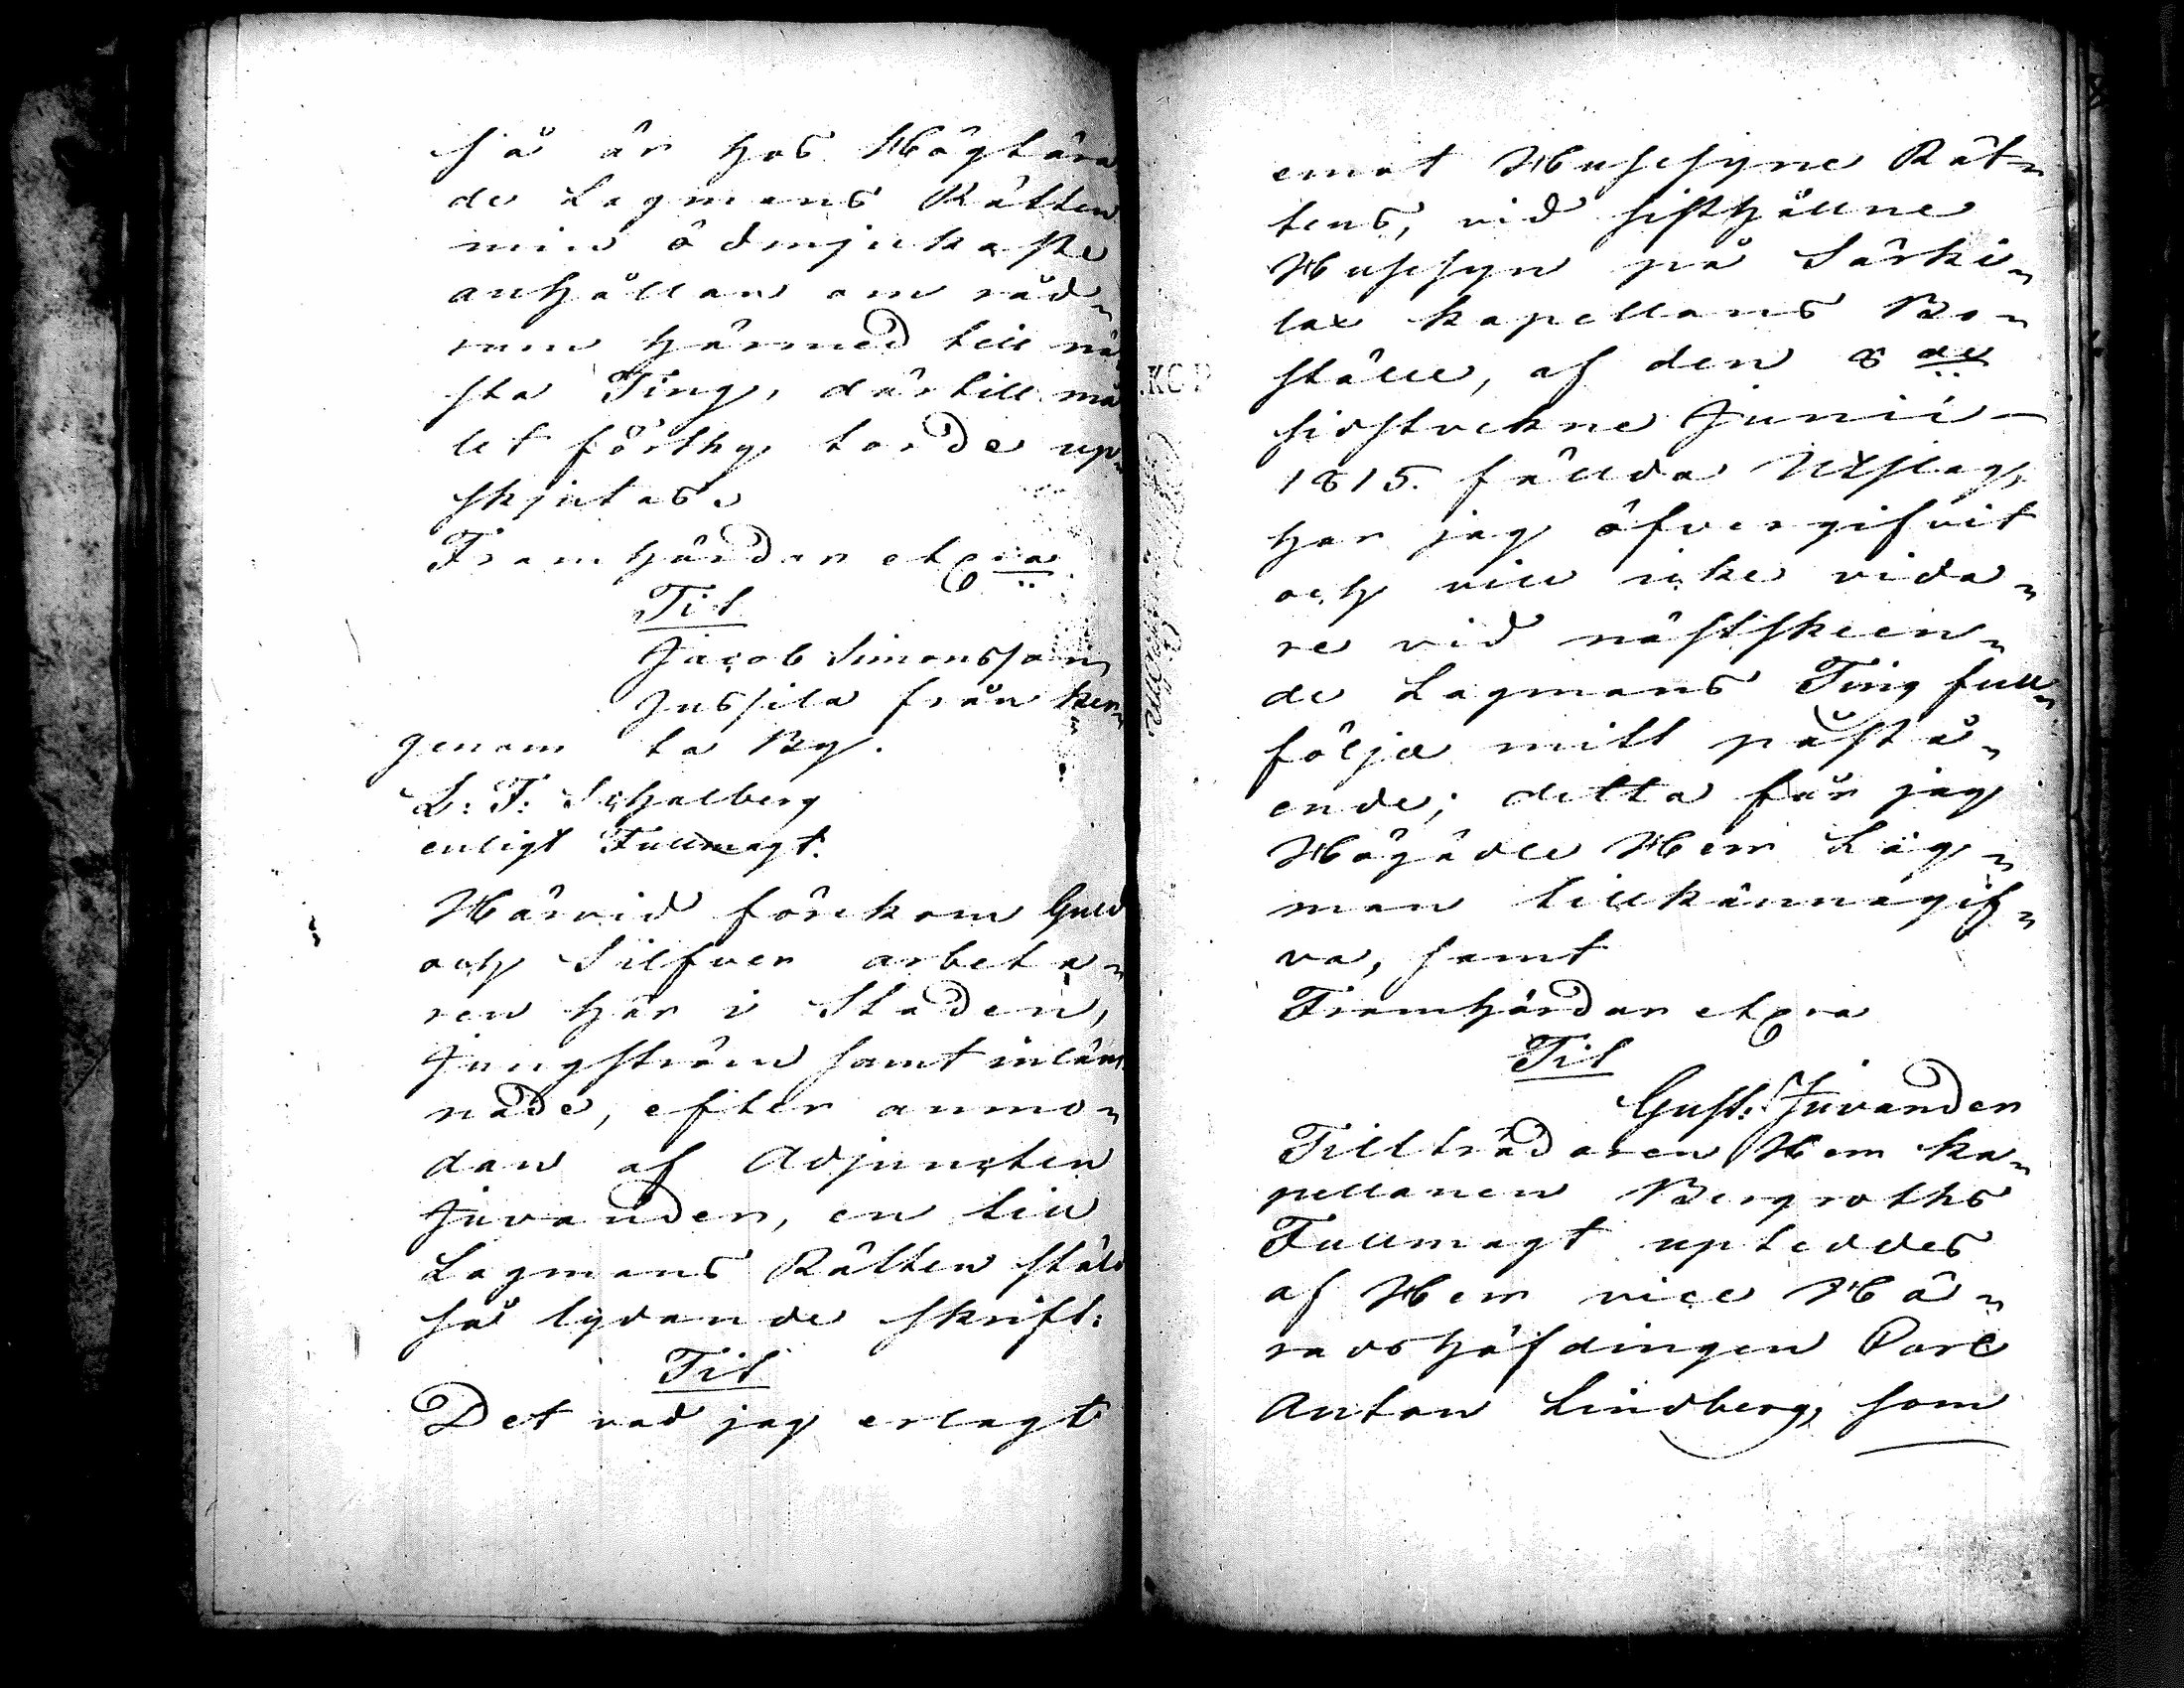 så är hos Högtära
de Lagmans Rätten
min ödmjukaste
anhållan om råd„
rum härmed till nä„
sta Ting, därtill må
let förthy torde up„
skjutas.
Framhärdar etcra
Til
Jacob Simonsson
Jussila från Ken„
genom ta By.
L: F: Schalberg
enligt Fullmagt.
Härvid förekom Guld
och Silfver arbeta„
ren här i Staden,
Jungström samt inläm
nade, efter anmo„
dan af Adjuncten
Juvander, en till
Lagmans Rätten stäld
så lydande skrift:
Til
Det vad jag erlagt
emot Husesyne Rät„
tens, vid sisthållne
Husesyn på Särki„
lax Kapellans Bo„
ställe, af den 8de
sidstvekne Junii
1815. fällda Utslag,
har jag öfvergifvit
och vill icke vida„
re vid nästskeen„
de Lagmans Ting full„
följa mitt påstå„
ende; detta får jag
Högädle Herr Lag„
man tillkännagif„
va, samt
Framhärdar etcra
Til
Gust: Juvander
Tillträdaren Herr Ka„
pellanen Bergroths
Fullmagt upteddes
af Herr vice Hä„
radshöfdingen Carl
Anton Lindberg, som